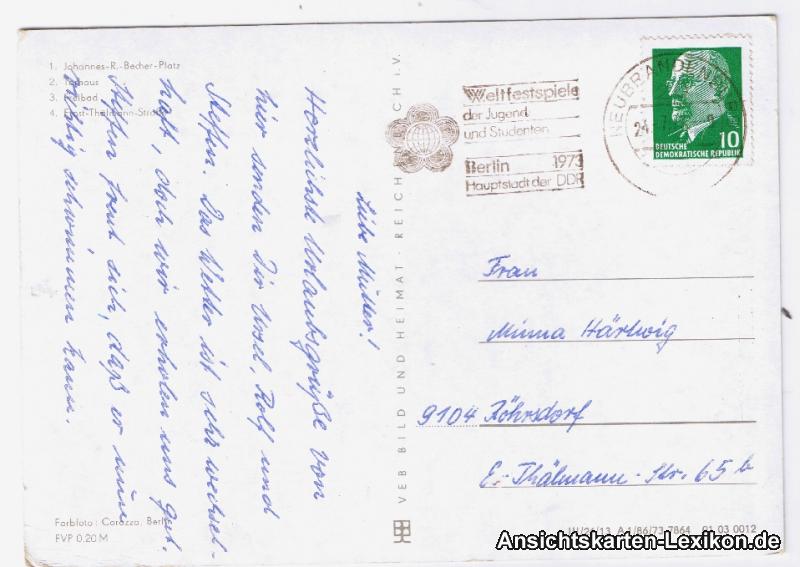 1. Johannes-R.-Becher-Platz
2. Torhaus
3. Freibad
4. Ernst-Thälmann-Straße
Liebe Mutter!
Herzlichste Urlaubsgrüße von
hier senden Dir Ursel, Rolf und
Steffen. Das Wetter ist sehr wechsel-
haft, doch wir erholen uns gut.
Steffen freut sich, daß er nun
richtig schwimmen kann.
Farbfoto: Carozza, Berlin
EVP 0.20 M
VEB BILD UND HEIMAT · REICHENBACH i. V.
Weltfestspiele
der Jugend
und Studenten
Berlin 1973
Hauptstadt der DDR
NEUBRANDENBURG
24.
10
DEUTSCHE
DEMOKRATISCHE REPUBLIK
Frau
Minna Härtwig
9104 Röhrsdorf
E.-Thälmann-Str. 65 b
III/26/13 A 1/86/73 7864 01 03 0012
Ansichtskarten-Lexikon.de